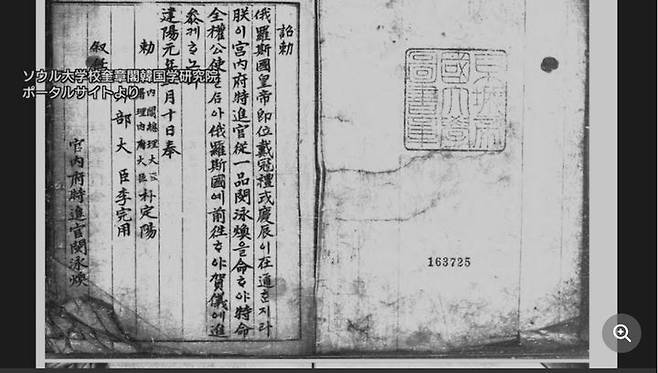 京城帝
國大學
圖書章
163725
詔勅
俄羅斯國皇帝卽位戴冠禮式慶辰이在邇ᄒᆞ지라
朕이宮內府特進官從一品閔泳煥을命ᄒᆞ야特命
全權公使를삼아俄羅斯國에前往ᄒᆞ야賀儀에進
參케ᄒᆞ노라
建陽元年 月十日奉
勅
內閣總理大臣
署理內部大臣
朴定陽
部大臣李完用
敍任
宮內府特進官閔泳煥
ソウル大学校奎章閣韓国学研究院
ポータルサイトより